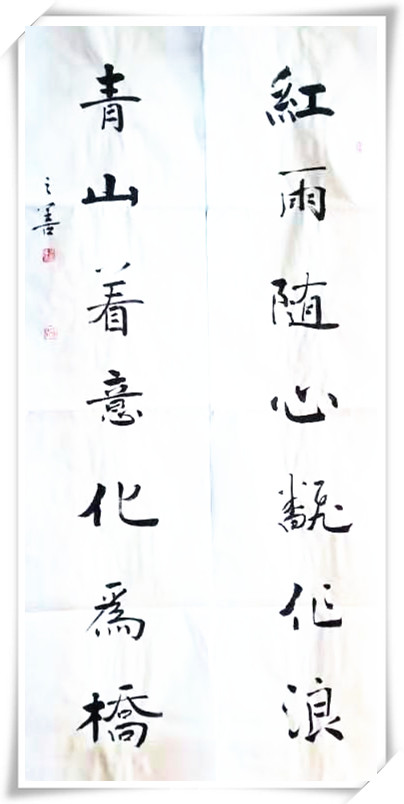 紅雨随心飜作浪
青山着意化爲橋
之善